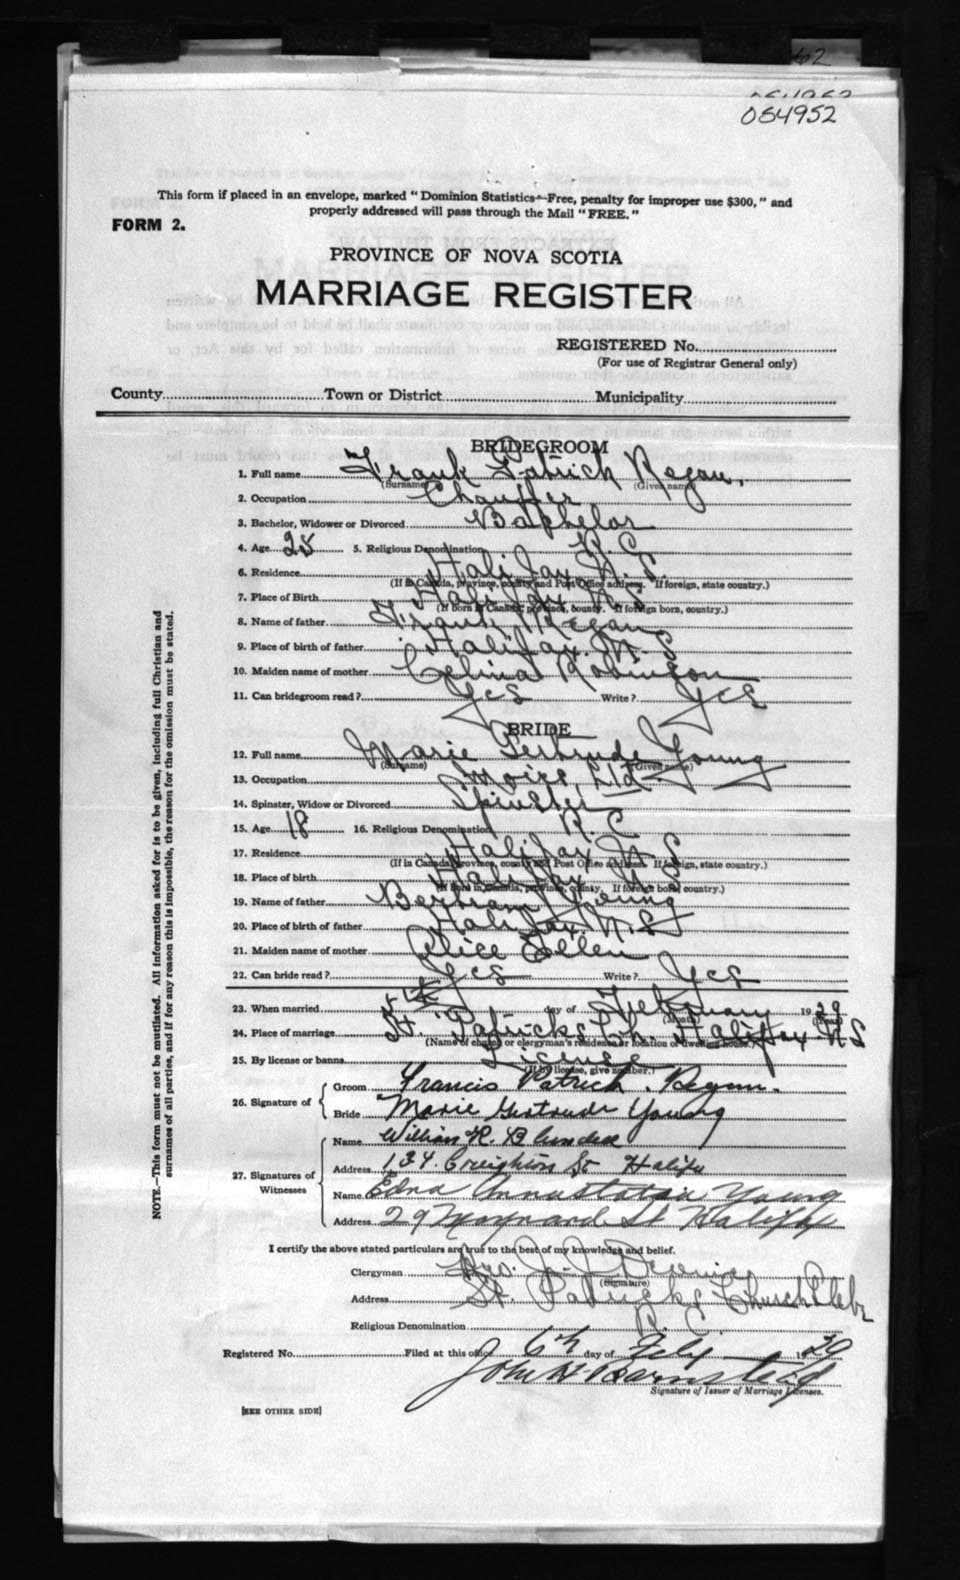 064952
This form if placed in an envelope, marked "Dominion Statistics-Free, penalty for improper use $300," and
properly addressed will pass through the Mail "FREE."
FORM 2.
PROVINCE OF NOVA SCOTIA
MARRIAGE REGISTER
REGISTERED No.
(For use of Registrar General only)
County Town or District Municipality
BRIDEGROOM
1. Full name Frank Patrick Regan.
(Surname) (Given name)
2. Occupation Chauffer
3. Bachelor, Widower or Divorced Bachelor
4. Age 25 5. Religious Denomination R. C
6. Residence Halifax N. S.
(If in Canada, province, county and Post Office address. If foreign, state country.)
7. Place of Birth Halifax N S
(If born in Canada, province, county. If foreign born, country.)
8. Name of father Frank Regan
9. Place of birth of father Halifax. N. S
10. Maiden name of mother Celina Robinson
11. Can bridegroom read? Yes Write? Yes
BRIDE
12. Full name Marie Gertrude Young
(Surname) (Given name)
13. Occupation Moirs Ltd
14. Spinster, Widow or Divorced Spinster
15. Age 18 16. Religious Denomination R. C
17. Residence Halifax N S
(If in Canada, province, county and Post Office address. If foreign, state country.)
18. Place of birth Halifax N S
(If born in Canada, province, county. If foreign born, country.)
19. Name of father Bertram Young
20. Place of birth of father Halifax. N. S
21. Maiden name of mother Alice Ellen
22. Can bride read? Yes Write? Yes
23. When married 5th day of February 1929
(Month) (Year)
24. Place of marriage St. Patricks Ch. Halifax N S
(Name of church or clergyman's residence or location of dwelling house.)
25. By license or banns License
(If by license, give number.)
26. Signature of
Groom Francis Patrick. Regan.
Bride Marie Gertrude Young
27. Signatures of Witnesses
Name William R. Blundell
Address 134 Creighton St Halifx
Name Edna Annastatia Young
Address 29 Maynard St Halifax
I certify the above stated particulars are true to the best of my knowledge and belief.
Clergyman J. J.
(Signature)
Address St. Patricks Church Glebe
Religious Denomination R. C.
Registered No. Filed at this office 6th day of Feby 1929
John H Barnstead
Signature of Issuer of Marriage Licenses.
[SEE OTHER SIDE]
NOTE.—This form must not be mutilated. All information asked for is to be given, including full Christian and
surnames of all parties, and if for any reason this is impossible, the reason for the omission must be stated.